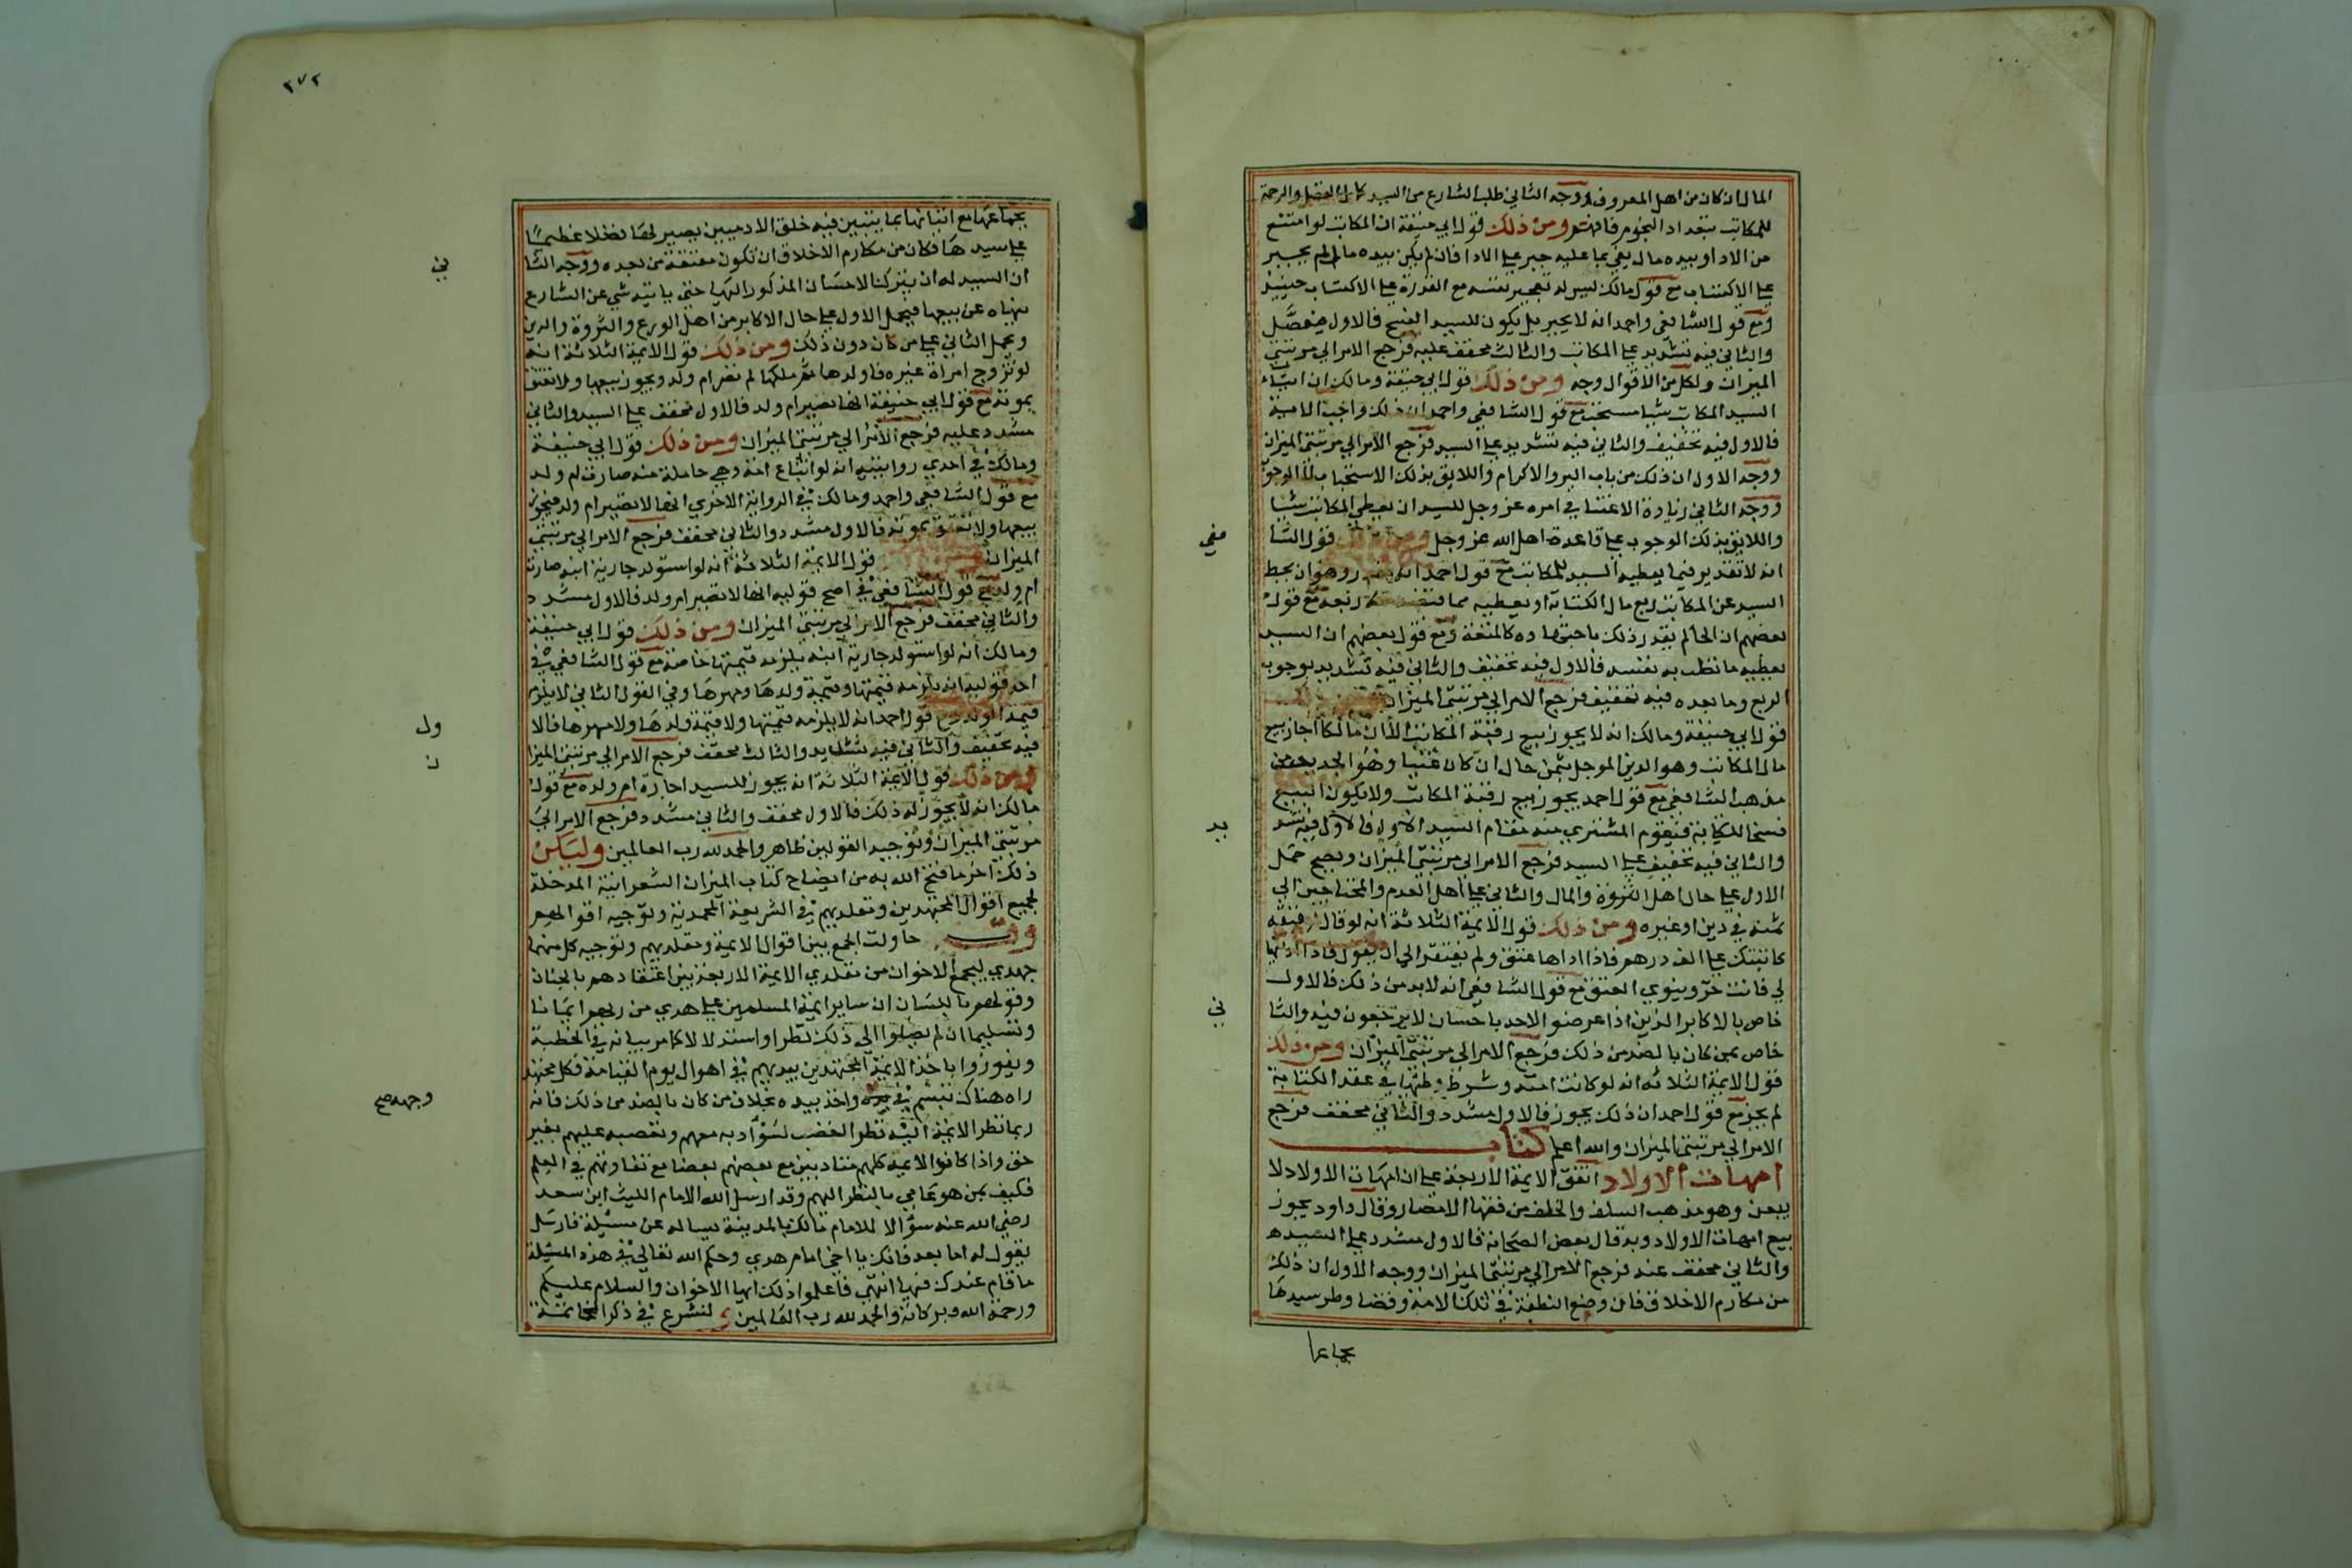 المال ان كان من اهل المعروف ووجه الثاني طلب الشارع من السيد كمال الفضل والرحمة
للمكاتب بتعداد النجوم فافهم ومن ذلك قول ابي حنيفة ان المكاتب لو امتنع
من الاداء وبيده مال يفي بما عليه جبر علي الادا فان لم يكن بيده مال لم يجبر
علي الاكتساب مع قول مالك ليس له تعجيز نفسه مع القدرة علي الاكتساب حينيذ
ومع قول الشافعي واحمد انه لا يجبر بل يكون للسيد الفسخ فالاول مفصل
والثاني فيه تشديد علي المكاتب والثالث مخفف عليه فرجع الامر الي مرتبتي
الميزان ولكل من الاقوال وجه ومن ذلك قول ابي حنيفة ومالك ان ايتاء
السيد المكاتب شيا مستحب مع قول الشافعي واحمد ان ذلك واجب للاية
فالاول فيه تخفيف والثاني فيه تشديد علي السيد فرجع الامر الي مرتبتي الميزان
ووجه الاول ان ذلك من باب البر والاكرام واللايق بذلك الاستحباب لا الوجوب
ووجه الثاني زيادة الاعتنا في امره عز وجل للسيد ان يعطي المكاتب شيا
واللايق بذلك الوجوب علي قاعدة اهل الله عز وجل ومن ذلك قول الشا
فعي
انه لا تقدير فيما يعطيه السيد للمكاتب مع قول احمد انه يقدر وهو ان يحط
السيد عن المكاتب ربع مال الكتابة او يعطيه مما قبضه ربعه مع قول
بعضهم ان الحاكم يقدر ذلك باجتهاده كالمتعة ومع قول بعضهم ان السيد
يعطيه ما تطيب به نفسه فالاول فيه تخفيف والثاني فيه تشديد بوجوب
الربع وما بعده فيه تخفيف فرجع الامر الي مرتبتي الميزان ومن ذلك
قول ابي حنيفة ومالك انه لا يجوز بيع رقبة المكاتب الا ان مالكا اجاز بيع
مال المكاتب وهو الدين الموجل بثمن حال ان كان عينا وهو الجديد من
مذهب الشافعي مع قول احمد يجوز بيع رقبة المكاتب ولا يكون البيع
فسخا للكتابة فيقوم المشتري منه مقام السيد الاول فالاول فيه تشد
يد
والثاني فيه تخفيف علي السيد فرجع الامر الي مرتبتي الميزان ويصح حمل
الاول علي حال اهل الثروة والمال والثاني علي اهل العدم والمحتاجين الي
ثمنه في دين او غيره ومن ذلك قول الايمة الثلاثة انه لو قال رقيقه
كاتبتك علي الف درهم فاذا اداها عتق ولم يفتقر الي ان يقول فاذا اديتها
الي فانت حر وينوي العتق مع قول الشافعي انه لابد من ذلك فالاول
خاص بالاكابر الذين اذا عرضوا لاحد باحسان لا يرجعون فيه والثا
ني
خاص بمن كان بالضد من ذلك فرجع الامر الي مرتبتي الميزان ومن ذلك
قول الايمة الثلاثه انه لو كاتب امته وشرط وطيها في عقد الكتابة
لم يجز مع قول احمد ان ذلك يجوز فالاول مشدد والثاني مخفف فرجع
الامر الي مرتبتي الميزان والله اعلم كتاب
امهات الاولاد اتفق الايمة الاربعة علي ان امهات الاولاد لا
يبعن وهو مذهب السلف والخلف من فقها الامصار وقال داود يجوز
بيع امهات الاولاد وبه قال بعض الصحابة فالاول مشدد علي السيد
والثاني مخفف عنه فرجع الامر الي مرتبتي الميزان ووجه الاول ان ذلك
من مكارم الاخلاق فان وضع النطفة في تلك الامة وقضا وطر سيدها
بجماعها
٢٧٢
بجماعها مع اتيانها بما يتبين فيه خلق الادميين يصير لها فضلا عظيما
علي سيدها فكان من مكارم الاخلاق ان تكون معتقة من بعده ووجه الثا
ني
ان السيد له ان يترك الاحسان المذكور اليها حتي ياتيه شي عن الشارع
ينهاه عن بيعها فيحمل الاول علي حال الاكابر من اهل الورع والثروة والدين
وحمل الثاني علي من كان دون ذلك ومن ذلك قول الايمة الثلاثة انه
لو تزوج امراة غيره فاولدها ثم ملكها لم تصر ام ولد ويجوز بيعها ولا تعتق
بموته مع قول ابي حنيفة انها تصير ام ولد فالاول مخفف علي السيد والثاني
مشدد عليه فرجع الامر الي مرتبتي الميزان ومن ذلك قول ابي حنيفة
ومالك في احدي روايتيه انه لو ابتاع امة وهي حاملة منه صارت ام ولد
مع قول الشافعي واحمد ومالك في الرواية الاخري انها لا تصير ام ولد فيجوز
بيعها ولا تعتق بموته فالاول مشدد والثاني مخفف فرجع الامر الي مرتبتي
الميزان قول الايمة الثلاثة انه لو استولد جارية ابنه صارت
ام ولد مع قول الشافعي في اصح قوليه انها لا تصير ام ولد فالاول مشدد
والثاني مخفف فرجع الامر الي مرتبتي الميزان ومن ذلك قول ابي حنيفة
ومالك انه لو استولد جارية ابنه يلزمه قيمتها خاصة مع قول الشافعي في
احد قوليه انه يلزمه قيمتها وقيمة ولدها ومهرها وفي القول الثاني لا يلزم
قيمة الولد ومع قول احمد انه لا يلزمه قيمتها ولا قيمة ولدها ولا مهرها فالا
ول
فيه تخفيف والثاني فيه تشديد والثالث مخفف فرجع الامر الي مرتبتي الميزا
ن
ومن ذلك قول الايمة الثلاثة انه يجوز للسيد اجارة ام ولده مع قول
مالك انه لا يجوز له ذلك فالاول مخفف والثاني مشدد فرجع الامر الي
مرتبتي الميزان وتوجيه القولين ظاهر والحمد لله رب العالمين وليكن
ذلك اخر ما فتح الله به من ايضاح كتاب الميزان الشعرانية المدخلة
لجميع اقوال المجتهدين ومقلديهم في الشريعة المحمدية وتوجيه اقوالهم
وقد حاولت الجمع بين اقوال الايمة ومقلديهم وتوجيه كل منهما
جهدي ليجمع الاخوان من مقلدي الايمة الاربعة بين اعتقادهم بالجنان
وقولهم باللسان ان ساير ايمة المسلمين علي هدي من ربهم ايمانا
وتسليما ان لم يصلوا الي ذلك نظرا واستدلالا كما مر بيانه في الخطبة
ويفوزوا باخذ الايمة المجتهدين بيديهم في اهوال يوم القيامة فكل مجتهد
راه هناك تبسم في وجهه واخذ بيده بخلاف من كان بالضد من ذلك فانه
وجهه صح
ربما نظر الايمة اليه نظر الغضب لسؤ ادبه معهم وتعصبه عليهم بغير
حق واذا كانوا الايمة كلهم متادبين مع بعضهم بعضا مع تفاوتهم في العلم
فكيف بمن هو عامي بالنظر اليهم وقد ارسل الله الامام الليث ابن سعد
رضي الله عنه سؤالا للامام مالك بالمدينة يساله عن مسيلة فارسل
يقول له اما بعد فانك يا اخي امام هدي وحكم الله تعالي في هذه المسيلة
ما قام عندك فيها انتهي فاعلموا ذلك ايها الاخوان والسلام عليكم
ورحمة الله وبركاته والحمد لله رب العالمين ولنشرع في ذكر الخاتمة